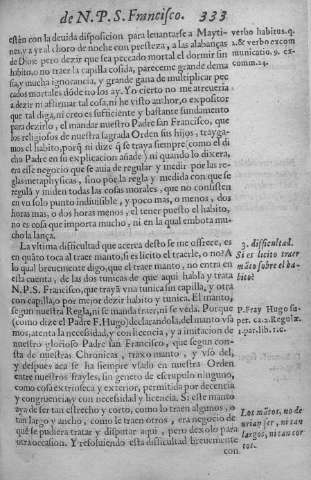 de N. P. S. Francisco. 333
estèn con la deuida disposicion para leuantarse a Mayti-
nes, y a yr al choro de noche con presteza, a las alabanças
de Dios: pero dezir que sea peccado mortal el dormir sin
habito, o no traer la capilla cosida, pareceme grande dema
sia, y mucho ignorancia, y grande gana de multiplicar pec
cados mortales dõde no los ay. Yo cierto no me atreueria
a dezir ni afirmar tal cosa, ni he visto author, o expositor
que tal diga, ni creo es sufficiente y bastante fundamento
para dezirlo, el mandar nuestro Padre san Francisco, que
los religiosos de nuestra sagrada Orden sus hijos, trayga-
mos el habito, porq̃ ni dize q̃ se traya siempre (como el di
cho Padre en su explicacion añade) ni quando lo dixera,
era esse negocio que se auia de regular y medir por las re-
glas metaphysicas, sino por la regla y medida con que se
regula y miden todas las cosas morales, que no consisten
en vn solo punto indiuisible, y poco mas, o menos, dos
horas mas, o dos horas menos, el tener puesto el habito,
no es cosa que importa mucho, ni en la qual embota mu-
cho la lança.
La vltima difficultad que acerca desto se me offrece, es
en quãto toca al traer manto, si es licito el traerle, o no? A
lo qual breuemente digo, que el traer manto, no entra en
esta cuenta, de las dos tunicas de que aqui habla y trata
N. P. S. Francisco, que traya vna tunica sin capilla, y otra
con capilla, o por mejor dezir habito y tunica. El manto,
segun nuestra Regla, ni se manda traer, ni se veda. Porque
(como dize el Padre F. Hugo) declarandola, del manto vsa
mos, atenta la necessidad, y con licencia, y a imitacion de
nuestro glorioso Padre san Francisco, que segun con-
sta de nuestras Chronicas, traxo manto, y vso del,
y despues aca se ha siempre vsado en nuestra Orden
entre nuestros frayles, sin genero de escrupulo ninguno,
como cosa extrinseca y exterior, permitida por decencia
y congruencia, y con necessidad y licencia. Si este manto
aya de ser tan estrecho y corto, como lo traen algunos, o
tan largo y ancho, como le traen otros, era negocio de
què se pudiera tratar y disputar aqui, pero dexolo para
otra occasion. Y resoluiendo esta difficultad breuemente
con
verbo habitus. q.
2. & verbo excom
municatio. 9. ex-
comm. 14.
3. difficultad.
Si es licito traer
mãto sobre el ha-
bito?
P. Fray Hugo su-
per. ca. 2. Regulæ.
1. par. lib. 1. c.
Los mãtos, no de
urian ser, ni tan
largos, ni tan cor
tos.